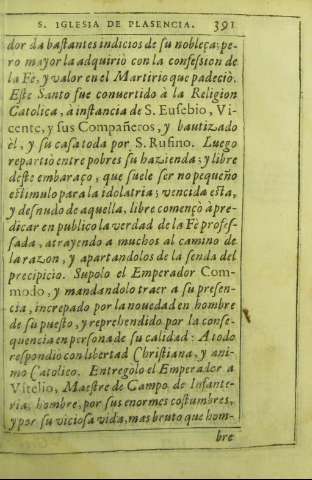 S. IGLESIA DE PLASENCIA. 391
dor da bastantes indicios de su nobleça; pe-
ro mayor la adquiriò con la confession de
la Fe, y valor en el Martirio que padeciò.
Este Santo fue convertido à la Religion
Catolica, a instancia de S. Eusebio, Vi-
cente, y sus Compañeros, y bautizado
èl, y su casa toda por S. Rufino. Luego
repartiò entre pobres su hazienda; y libre
deste embaraço, que suele ser no pequeño
estimulo para la idolatria; vencida esta,
y desnudo de aquella, libre començò à pre-
dicar en publico la verdad de la Fè profes-
sada, atrayendo a muchos al camino de
la razon, y apartandolos de la senda del
precipicio. Supolo el Emperador Com-
modo, y mandandolo traer a su presen-
cia, increpado por la novedad en hombre
de su puesto, y reprehendido por la conse-
quencia en persona de su calidad: A todo
respondio con libertad Christiana, y ani-
mo Catolico. Entregòlo el Emperador a
Vitelio, Maestre de Campo de Infante-
ria, hombre, por sus enormes costumbres,
y por su viciosa vida, mas bruto que hom-
bre